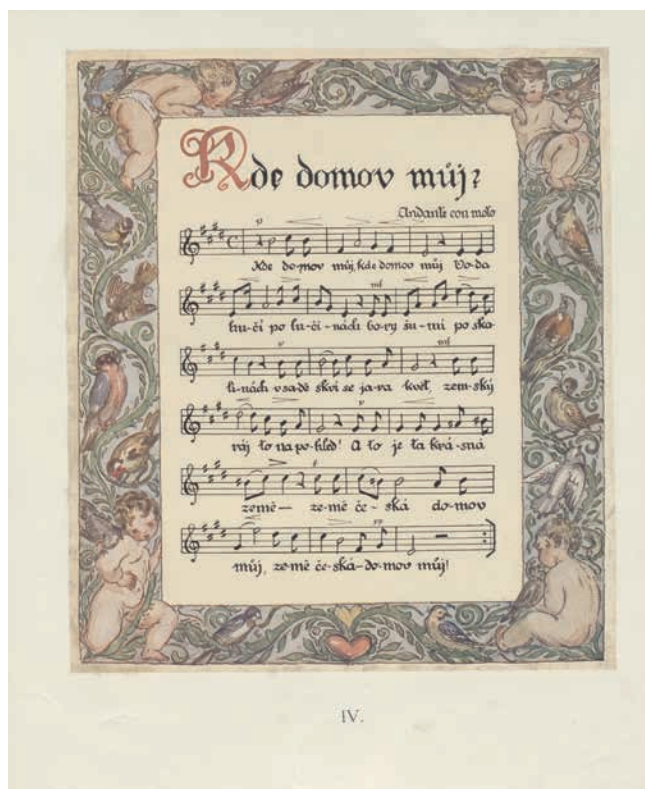 Kde domov můj?
Andante con moto
p
Kde do-mov můj, kde domov můj Vo-da
mf
hu-čí po lu-či-nách bo-ry šu-mí po ska-
p mf
li-nách v sadě skví se ja-ra květ, zem-ský
p
ráj to na po-hled! A to je ta krá-sná
země— ze-mě če-ská do-mov
pp
můj, ze-mě če-ská-do-mov můj!
IV.